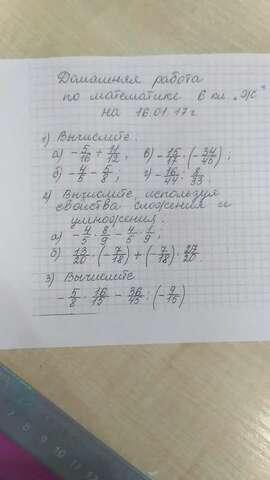 Домашняя работа
по математике 6 кл. "Ж"
на 16.01.17 г
1) Вычислите:
а) -5/16 + 11/12; в) -15/17 · (-34/45);
б) -4/5 - 5/8; г) -16/44 : 8/33.
2) Вычислите, используя
свойства сложения и
умножения:
а) -4/5 · 8/9 - 4/5 · 1/9;
б) 13/20 · (-7/18) + (-7/18) · 27/20.
3) Вычислите
-5/8 · 16/15 - 36/45 : (-9/15)